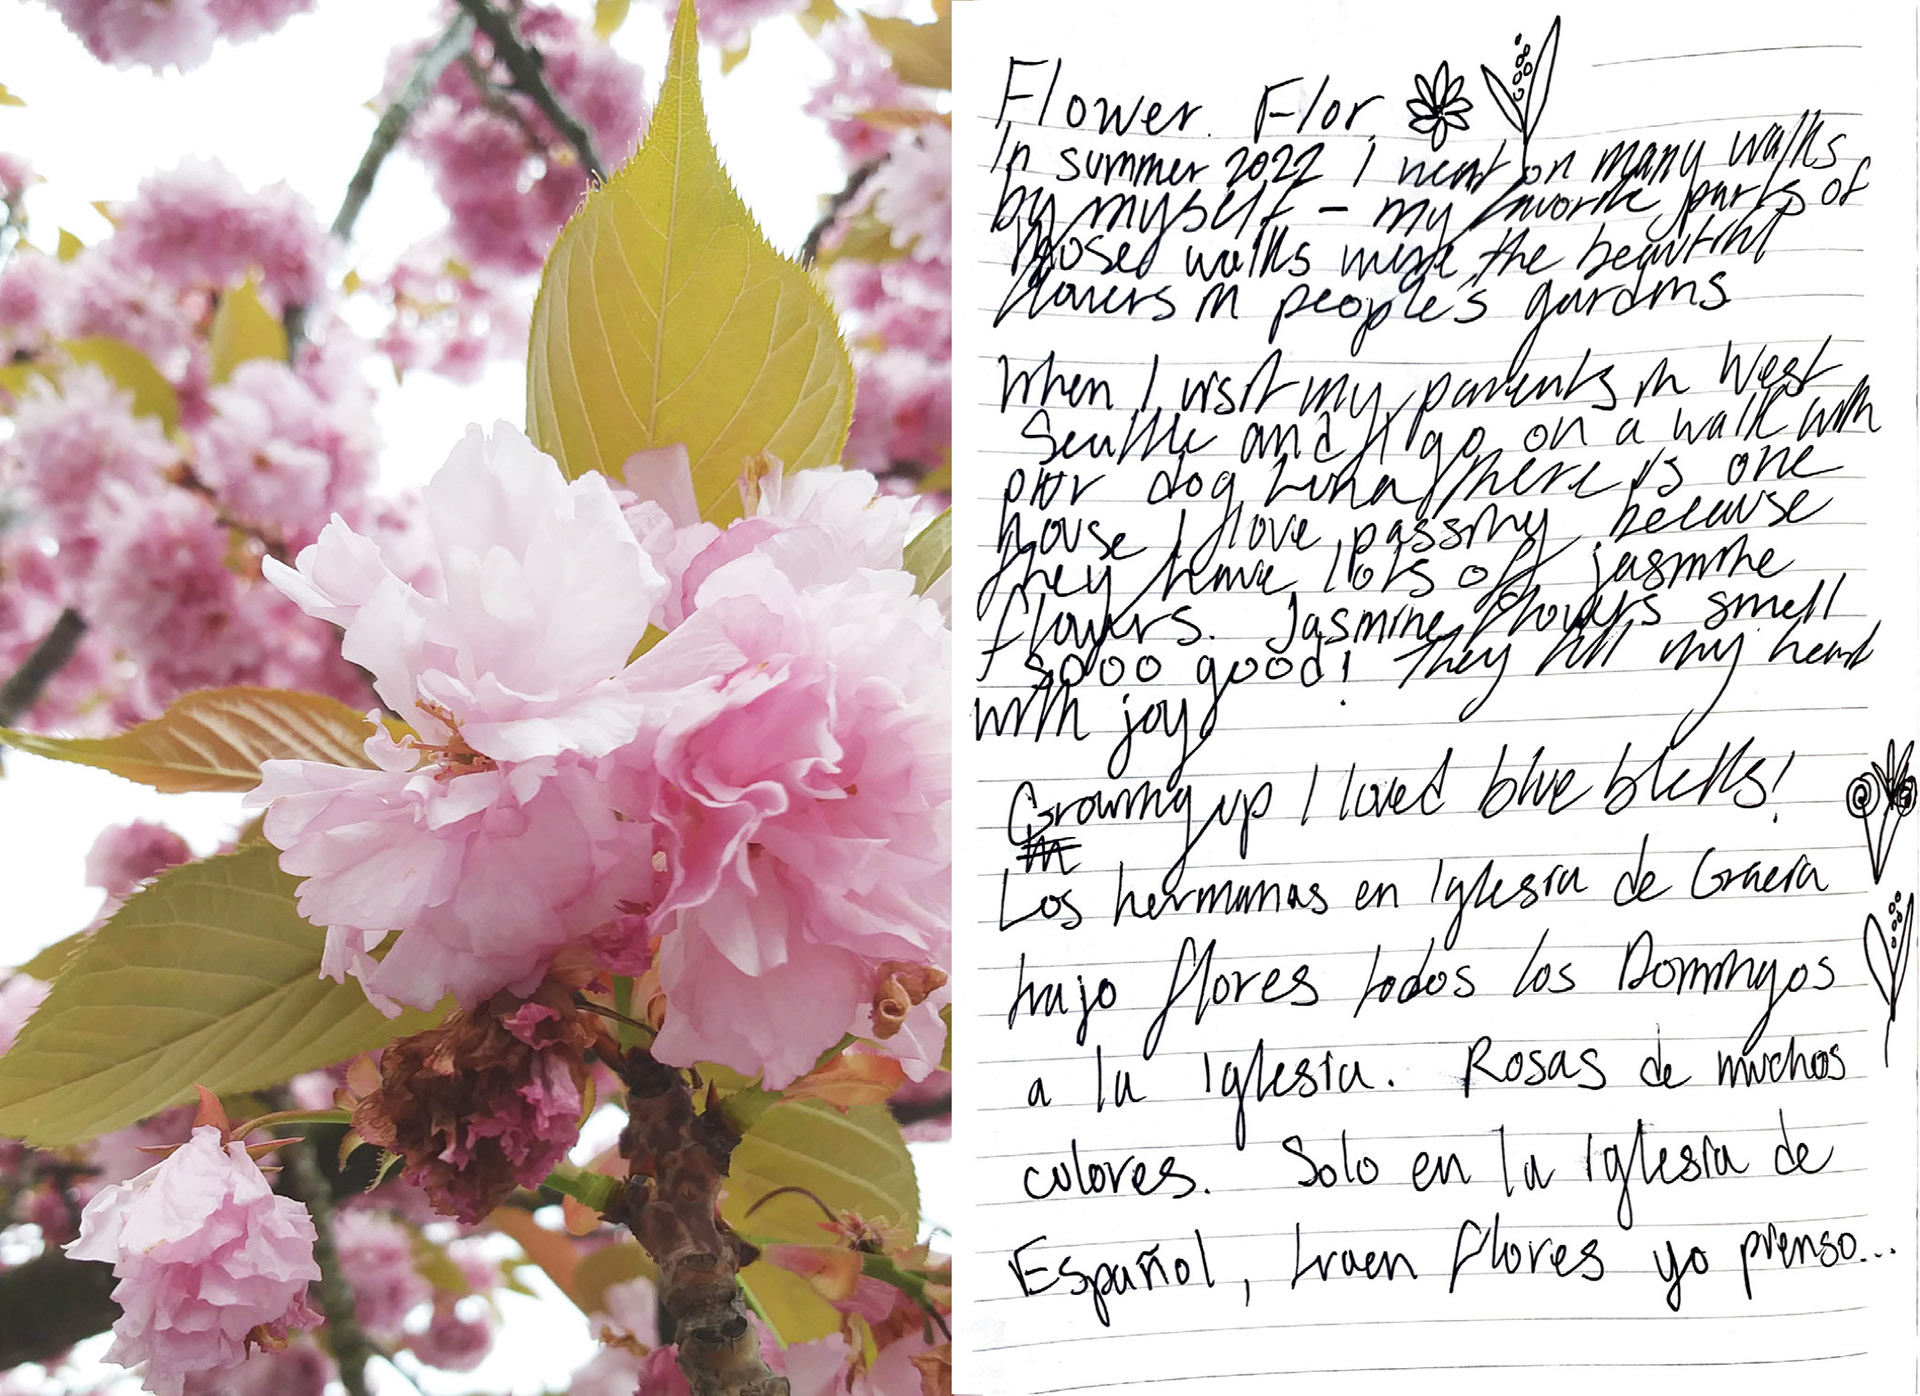 Flower. Flor.
In summer 2022 I went on many walks
by myself – my favorite parts of
those walks were the beautiful
flowers in people's gardens
When I visit my parents in West
Seattle and I go on a walk with
our dog Luna there is one
house I love passing because
they have lots of jasmine
flowers. Jasmine flowers smell
sooo good! They fill my heart
with joy
Growing up I loved blue bells!
Los hermanas en Iglesia de Gracia
trajo flores todos los Domingos
a la Iglesia. Rosas de muchos
colores. Solo en la Iglesia de
Español, traen flores yo pienso...